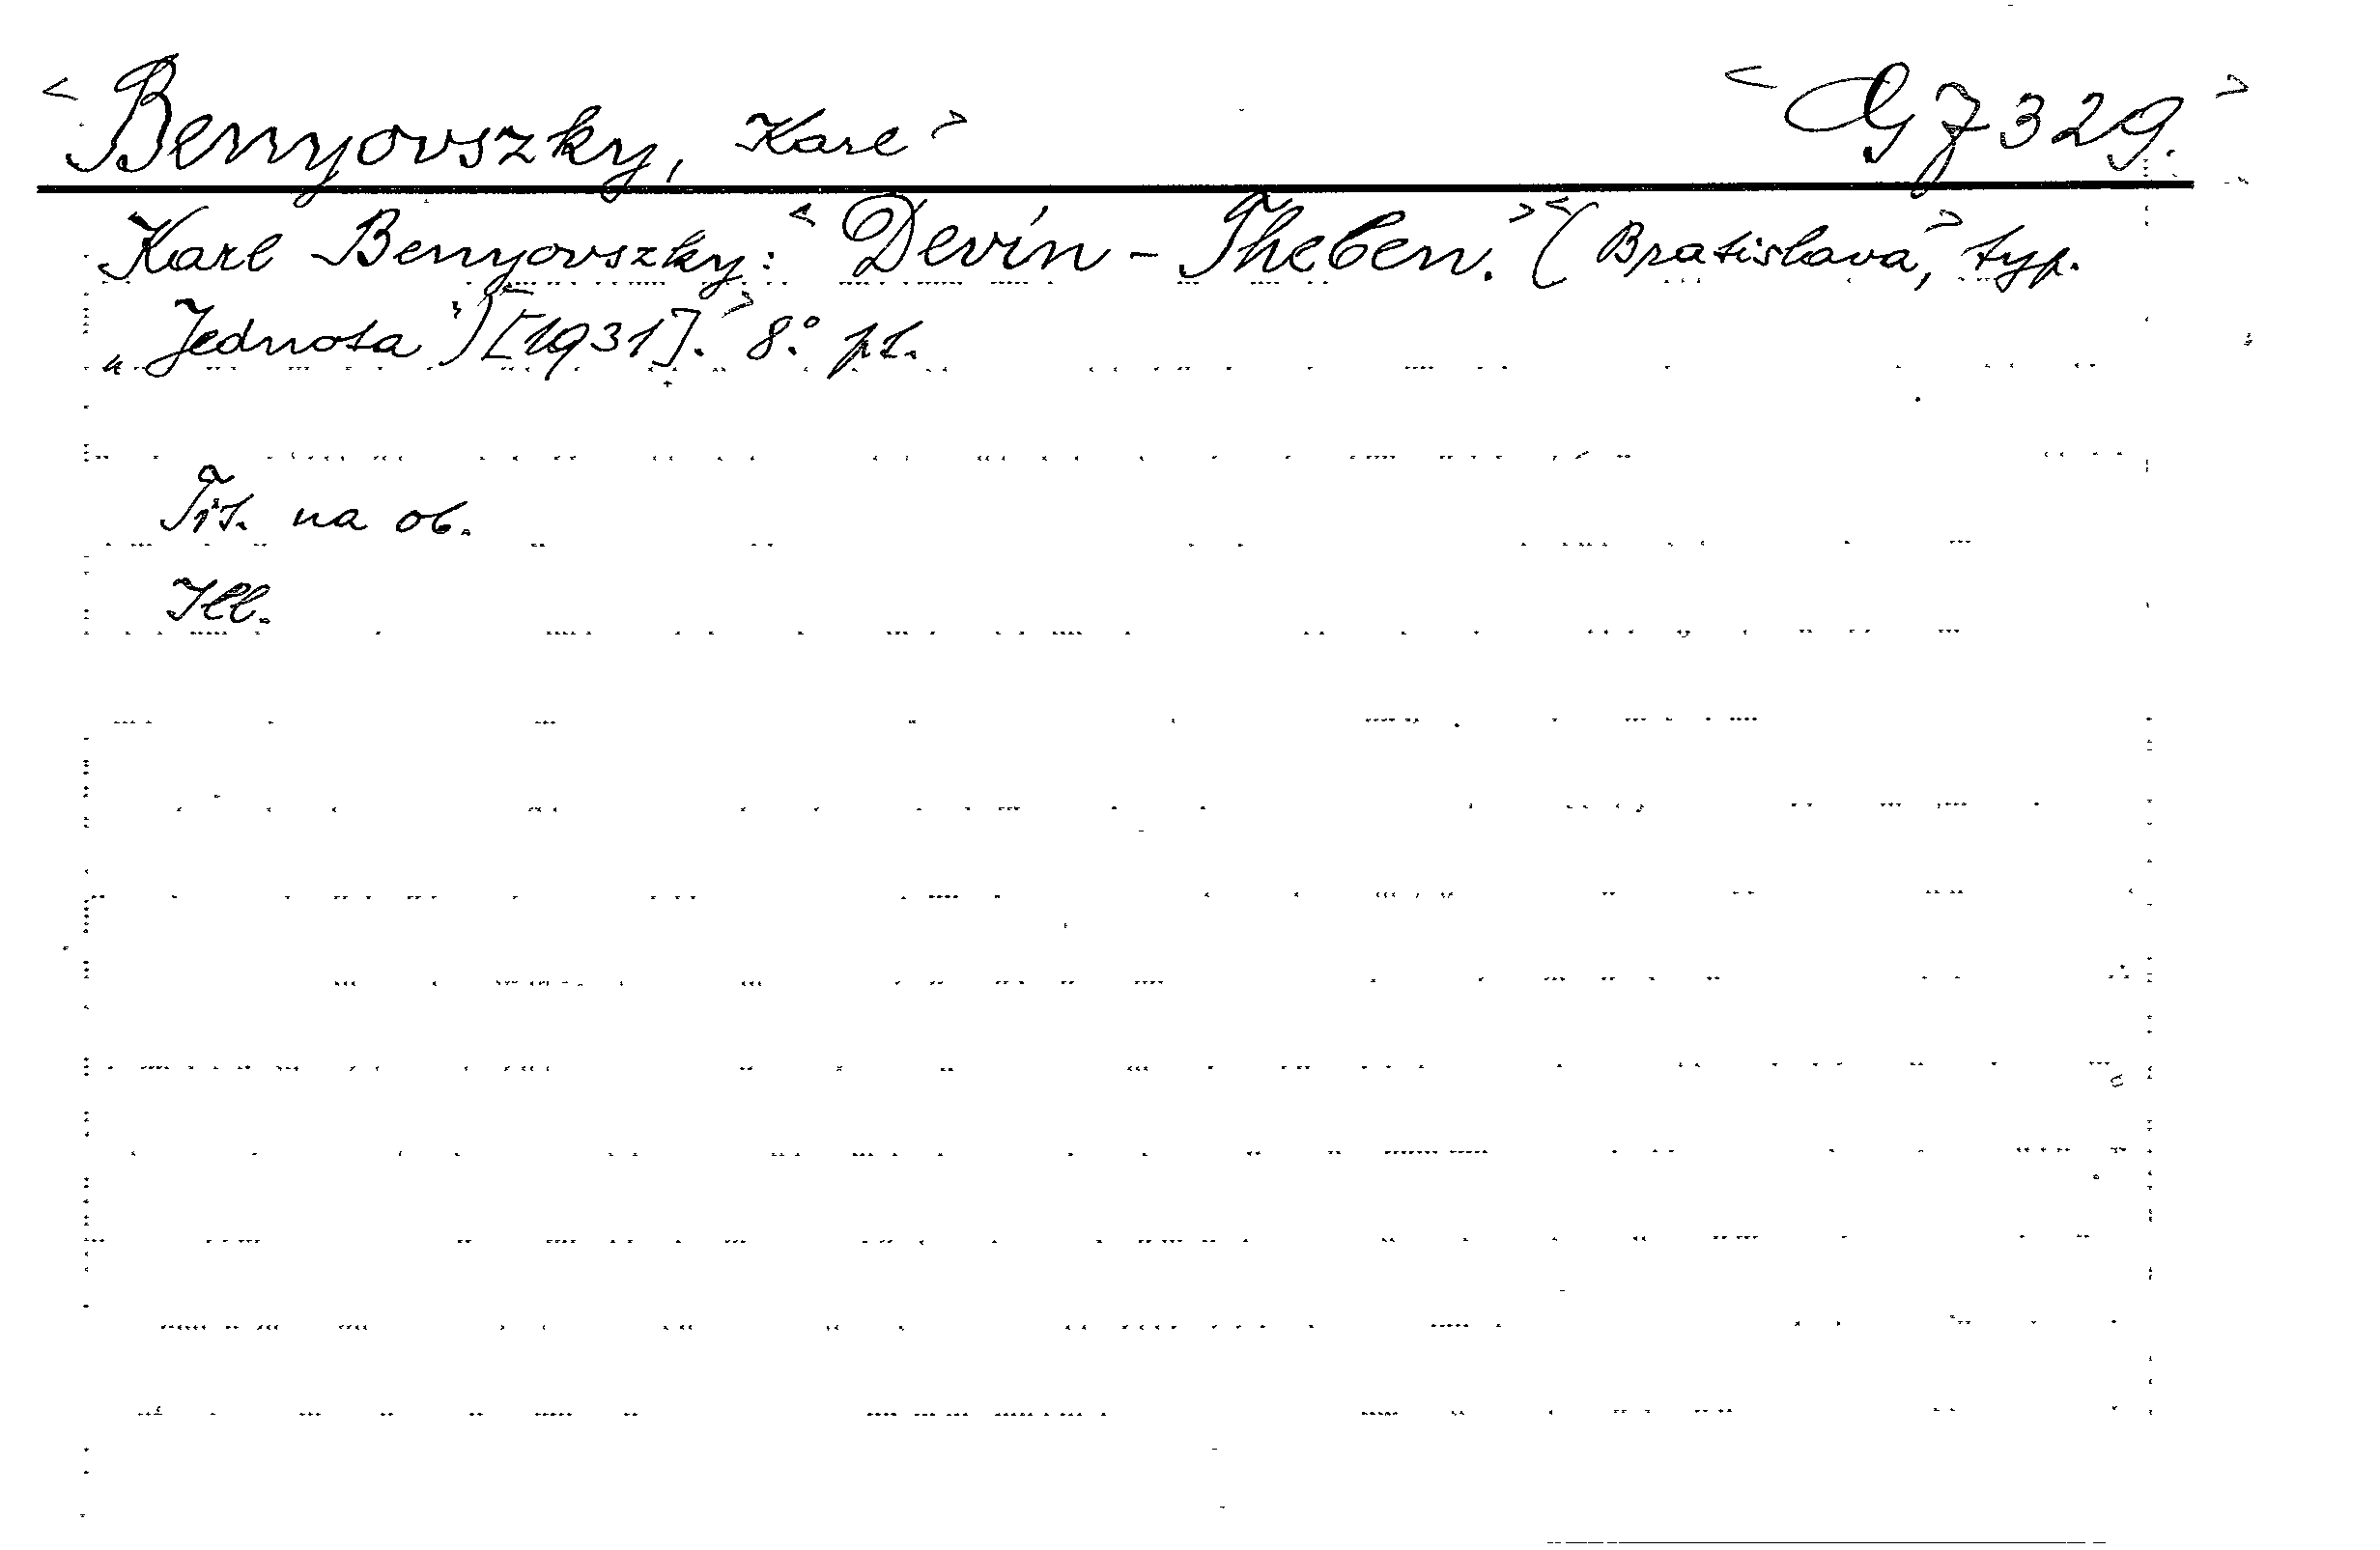 <Benyovszky, Karl> <G 7329.>
Karl Benyovszky: <Devín - Theben.> <(Bratislava,> typ.
„Jednota") <[1931].> 8° pl.
Tit. na ob.
Ill.